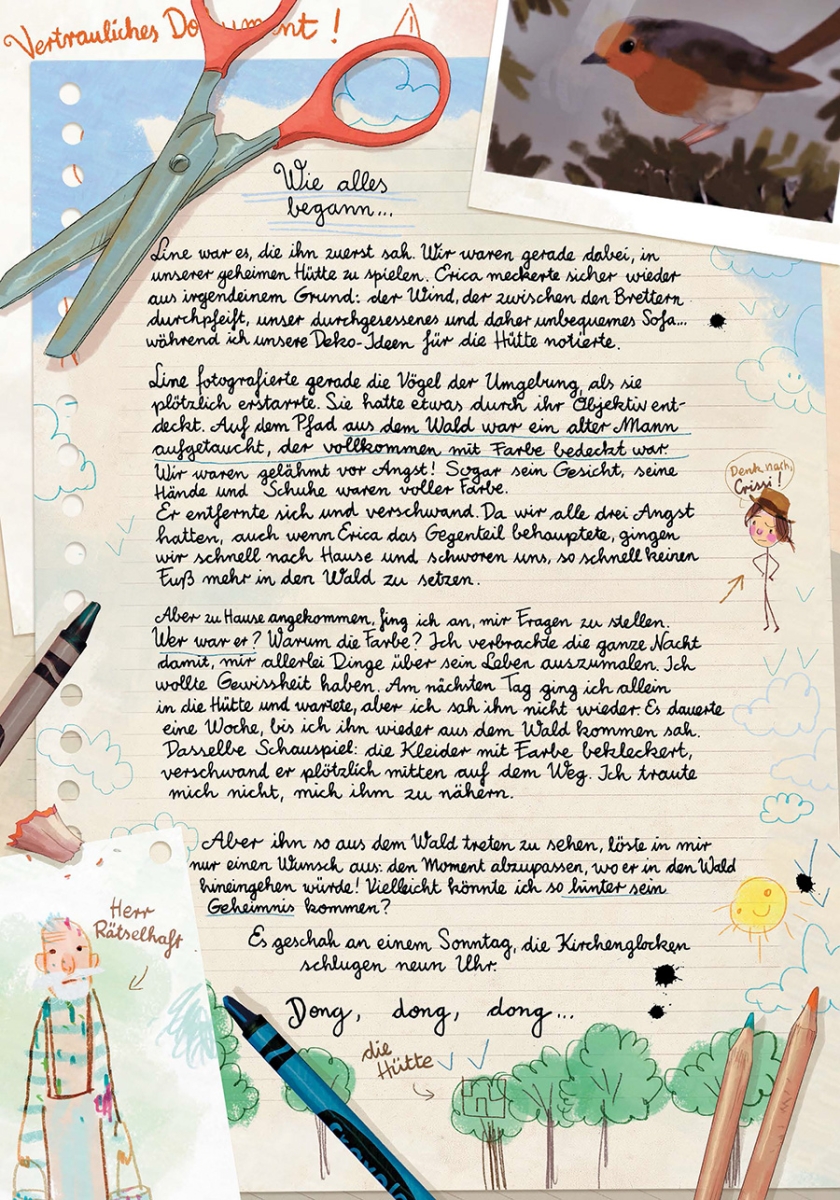 Vertrauliches Do ment !
Wie alles
begann...
Line war es, die ihn zuerst sah. Wir waren gerade dabei, in
unserer geheimen Hütte zu spielen. Erica meckerte sicher wieder
aus irgendeinem Grund: der Wind, der zwischen den Brettern
durchpfeift, unser durchgesessenes und daher unbequemes Sofa...
während ich unsere Deko-Ideen für die Hütte notierte.
Line fotografierte gerade die Vögel der Umgebung, als sie
plötzlich erstarrte. Sie hatte etwas durch ihr Objektiv ent-
deckt. Auf dem Pfad aus dem Wald war ein alter Mann
aufgetaucht, der vollkommen mit Farbe bedeckt war.
Wir waren gelähmt vor Angst! Sogar sein Gesicht, seine
Hände und Schuhe waren voller Farbe.
Er entfernte sich und verschwand. Da wir alle drei Angst
hatten, auch wenn Erica das Gegenteil behauptete, gingen
wir schnell nach Hause und schworen uns, so schnell keinen
Fuß mehr in den Wald zu setzen.
Denk nach,
Crissi!
Aber zu Hause angekommen, fing ich an, mir Fragen zu stellen.
Wer war er? Warum die Farbe? Ich verbrachte die ganze Nacht
damit, mir allerlei Dinge über sein Leben auszumalen. Ich
wollte Gewissheit haben. Am nächsten Tag ging ich allein
in die Hütte und wartete, aber ich sah ihn nicht wieder. Es dauerte
eine Woche, bis ich ihn wieder aus dem Wald kommen sah.
Dasselbe Schauspiel: die Kleider mit Farbe bekleckert,
verschwand er plötzlich mitten auf dem Weg. Ich traute
mich nicht, mich ihm zu nähern.
Aber ihn so aus dem Wald treten zu sehen, löste in mir
nur einen Wunsch aus: den Moment abzupassen, wo er in den Wald
hineingehen würde! Vielleicht könnte ich so hinter sein
Geheimnis kommen?
Es geschah an einem Sonntag, die Kirchenglocken
schlugen neun Uhr.
Dong, dong, dong...
Herr
Rätselhaft
die
Hütte
Crayola